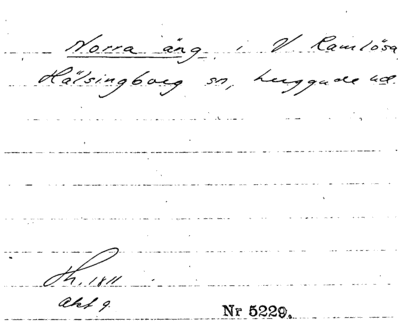 Norra äng i V Ramlösa
Hälsingborg sn, Luggude hd.
Sh. 1811
Akt 9.
Nr 5229.